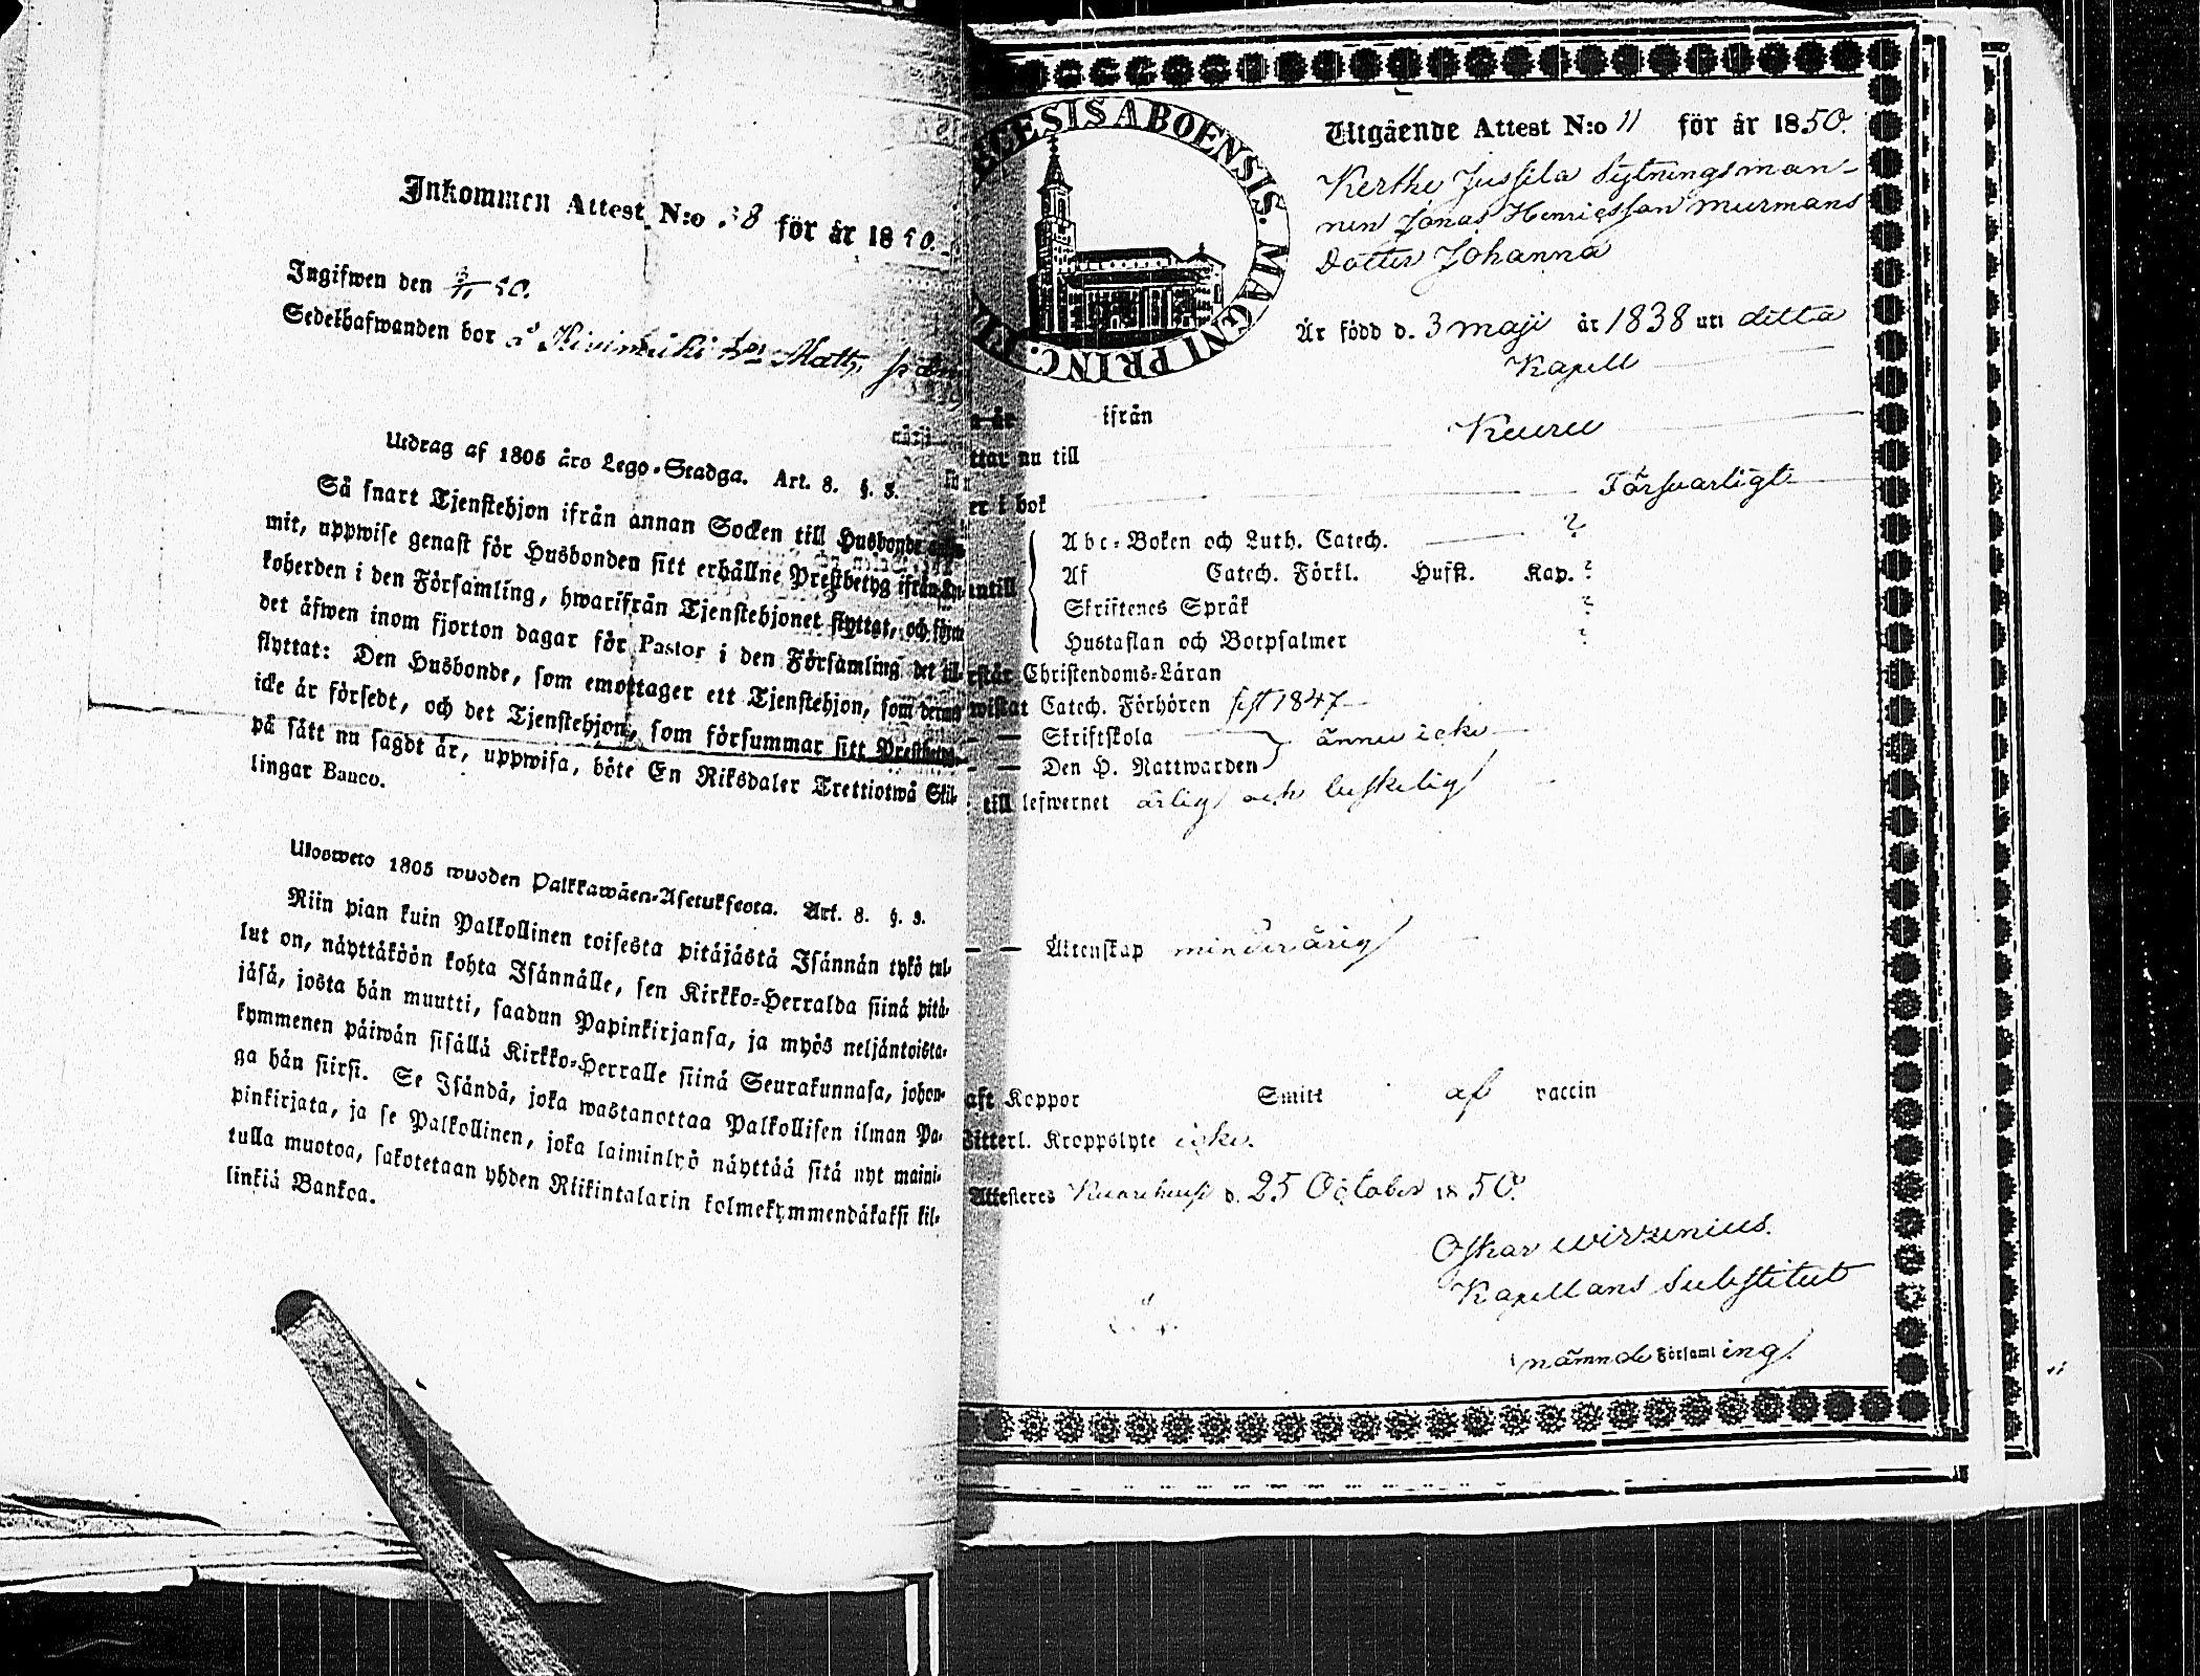 Inkommen Attest N:o 38 för år 1850.
Ingifwen den 3/11 50.
Sedelhafwanden bor å Kivimäki hos Matts
Utdrag af 1805 års Lego-Stadga. Art. 8. §. 3.
Så snart Tjenstehjon ifrån annan Socken till Husbonde
mit, uppwise genast för Husbonden sitt erhållne Prestbetyg ifrån
koherden i den Församling, hwarifrån Tjenstehjonet flyttat, och
det åfwen inom fjorton dagar för Pastor i den Församling det
flyttat: Den Husbonde, som emottager ett Tjenstehjon, som
icke är försedt, och det Tjenstehjon, som försummar sitt Prestbetyg,
på sått nu sagdt är, uppwisa, böte En Riksdaler Trettiotwå Skil-
lingar Banco.
Ulosweto 1805 wuoden Palkkawäen-Asetuksesta. Art. 8. §. 3.
Niin pian kuin Palkollinen toisesta pitäjästä Isännän tykö tul-
lut on, näyttäköön kohta Isännälle, sen Kirkko-Herralda siinä pitä-
jäsä, josta hän muutti, saadun Papinkirjansa, ja myös neljäntoista-
kymmenen päiwän sisällä Kirkko-Herralle siinä Seurakunnasa, johon-
ga hän siirsi. Se Isändä, joka wastanottaa Palkollisen ilman Pa-
pinkirjata, ja se Palkollinen, joka laiminlyö näyttää sitä nyt maini-
tulla muotoa, sakotetaan yhden Riikintalarin kolmekymmendäkaksi kil-
linkiä Bankoa.
ECESIS ABOENSIS. MAGNI PRINC.
Utgående Attest N:o 11 för år 1850.
Kerthe Jussila Sytningsman-
nen Jonas Henricsson Murmans
Dotter Johanna
Är född d. 3 maji år 1838 uti detta
Kapell
ifrån
ttar nu till Kuru
er i bok Försvarligt
Abc-Boken och Luth. Catech. ?
Af Catech. Förkl. Hufst. Kap. ?
Skriftenes Språk ?
Hustaflan och Botpsalmer ?
rstår Christendoms-Läran
wistat Catech. Förhören sist 1847
— — Skriftskola } ännu icke
— — Den H. Nattwarden
till lefwernet ärlig och beskelig
— — Ächtenskap minderårig
aft Koppor Smitt af vaccin
Witterl. Kroppslyte icke.
Attesteres d. 25 October 1850.
Oskar Wirzenius.
Kapellans Substitut
i nämnde Församling